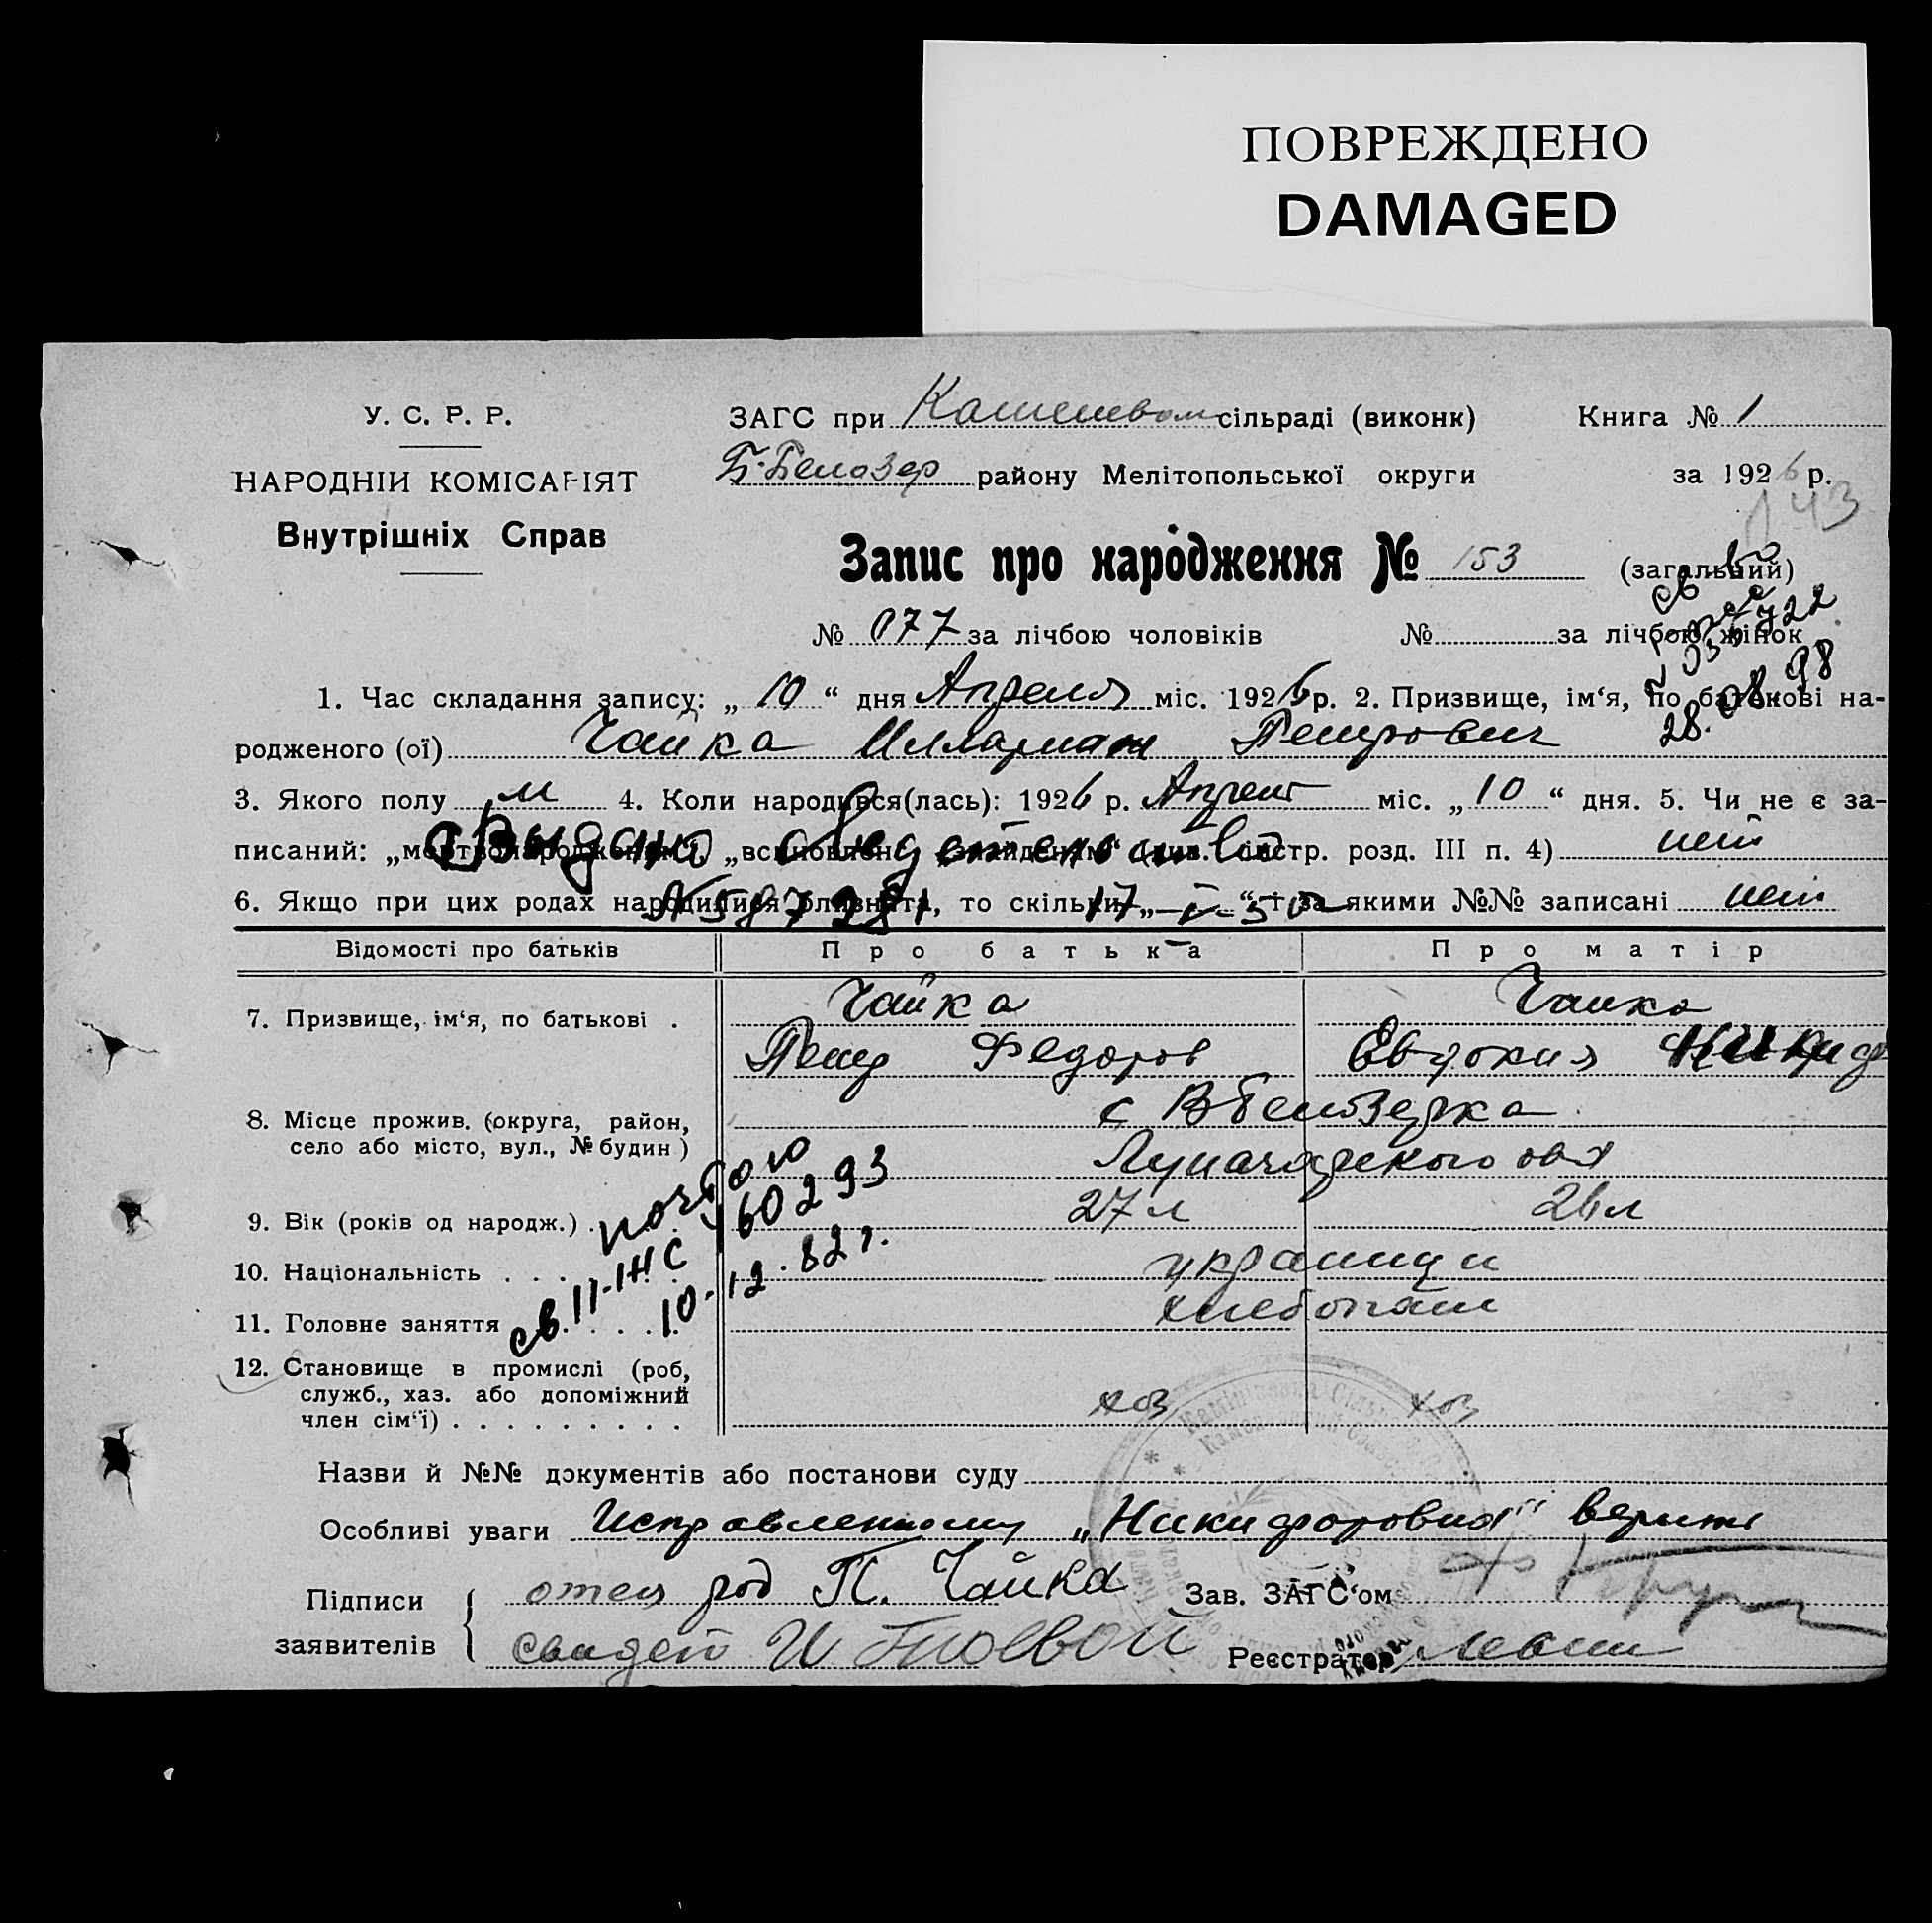 ПОВРЕЖДЕНО
DAMAGED
У. С. Р. Р.
НАРОДНІЙ КОМІСАРІЯТ
Внутрішніх Справ
ЗАГС при сільраді (виконк)
Книга № 1
Б. Белозер району Мелітопольської округи
за 1926 р.
143
Запис про народження № 153 (загальний)
№ 077 за лічбою чоловіків № за лічбою жінок
28.08.98
1. Час складання запису: „ 10 “ дня Апреля міс. 1926 р. 2. Призвище, ім‘я, по батькові на-
родженого (ої) Чайка Илларион Петрович
3. Якого полу м 4. Коли народився(лась): 1926 р. Апреля міс. „ 10 “ дня. 5. Чи не є за-
писаний: „мертвонародженим“, „встановлено знайденим“ (див. інстр. розд. III п. 4) нет
Выдано свидетельство
6. Якщо при цих родах народилися близнята, то скільки „ “ і за якими №№ записані нет
Відомості про батьків Про батька Про матір
7. Призвище, ім‘я, по батькові . Чайка Чайка
Петр Федоров Евдокия Никиф
8. Місце прожив. (округа, район, с Вбелозерка
село або місто, вул., № будин) Луначарского
почтою
9. Вік (років од народж.) . 27 л 26 л
св. II-ЖС 160293
10. Національність . . . . украинци
10.12.82 г.
11. Головне заняття . . . . хлебопаш
12. Становище в промислі (роб,
служб., хаз. або допоміжний
член сім‘ї) . . . . . . . . . хоз хоз
Назви й №№ документів або постанови суду
Особливі уваги Исправленному „Никифоровна“ верить
Підписи отец род П. Чайка Зав. ЗАГС‘ом
заявителів свидет И Реєстратор